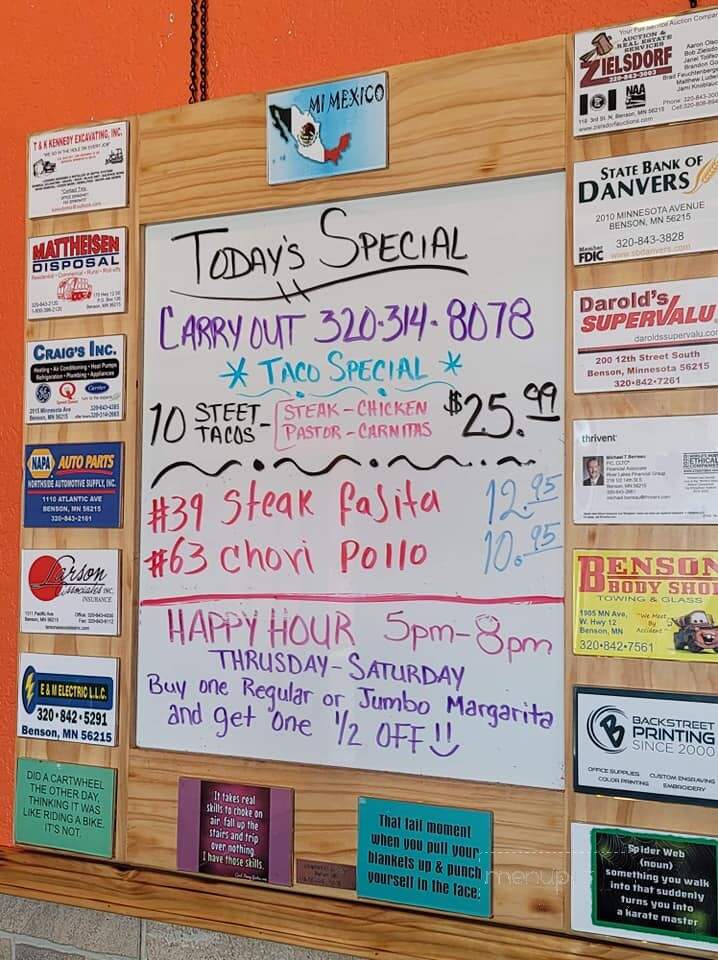 MI MEXICO
TODAY'S SPECIAL
CARRY OUT 320-314-8078
* TACO SPECIAL *
10 STEET TACOS - STEAK - CHICKEN $25.99
PASTOR - CARNITAS
#39 Steak fajita 12.95
#63 Chori Pollo 10.95
HAPPY HOUR 5pm-8pm
THRUSDAY-SATURDAY
Buy one Regular or Jumbo Margarita
and get one 1/2 OFF!!
T & K KENNEDY EXCAVATING, INC.
MATTHEISEN
DISPOSAL
CRAIG'S INC.
Heating • Air Conditioning • Heat Pumps
Refrigeration • Plumbing • Appliances
Carrier
NAPA AUTO PARTS
NORTHSIDE AUTOMOTIVE SUPPLY, INC.
1110 ATLANTIC AVE
BENSON, MN 56215
320-843-2161
Larson
Associates INC.
INSURANCE
E & M ELECTRIC L.L.C.
320-842-5291
Benson, MN 56215
DID A CARTWHEEL
THE OTHER DAY,
THINKING IT WAS
LIKE RIDING A BIKE.
IT'S NOT.
It takes real
skills to choke on
air, fall up the
stairs and trip
over nothing
I have those skills.
That fail moment
when you pull your
blankets up & punch
yourself in the face.
menupix
Your Full Service Auction Company
AUCTION &
REAL ESTATE
SERVICES
ZIELSDORF
320-843-3003
NAA
118 3rd St. N, Benson, MN 56215
www.zielsdorfauctions.com
STATE BANK OF
DANVERS
2010 MINNESOTA AVENUE
BENSON, MN 56215
320-843-3828
Member
FDIC
www.sbdanvers.com
Darold's
SUPERVALU
daroldssupervalu.co
200 12th Street South
Benson, Minnesota 56215
320•842•7261
thrivent
BENSON
BODY SHOP
TOWING & GLASS
1985 MN Ave,
W. Hwy 12
Benson, MN
320•842•7561
"We Meet
By
Accident"
B BACKSTREET
PRINTING
SINCE 2000
OFFICE SUPPLIES CUSTOM ENGRAVING
COLOR PRINTING EMBROIDERY
Spider Web
(noun)
something you walk
into that suddenly
turns you into
a karate master